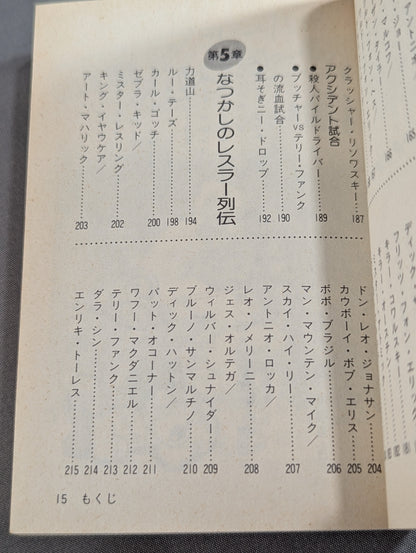 クラッシャー・リソワスキー……187
アクシデント試合
●殺人パイルドライバー……189
●ブッチャーVSテリー・ファンク
の流血試合……190
●耳そぎニー・ドロップ……192
第5章 なつかしのレスラー列伝
力道山……194
ルー・テーズ……198
カール・ゴッチ……200
ゼブラ・キッド／
ミスター・レスリング……202
キング・イヤウケア／
アート・マハリック……203
ドン・レオ・ジョナサン……204
カウボーイ・ボブ・エリス……205
ボボ・ブラジル……206
マン・マウンテン・マイク／
スカイ・ハイ・リー……207
アントニオ・ロッカ／
レオ・ノメリーニ……208
ジェス・オルテガ／
ウィルバー・シュナイダー……209
ブルーノ・サンマルチノ……210
ディック・ハットン／
パット・オコーナー……211
ワフー・マクダニエル……212
テリー・ファンク……213
ダラ・シン……214
エンリキ・トーレス……215
15 もくじ